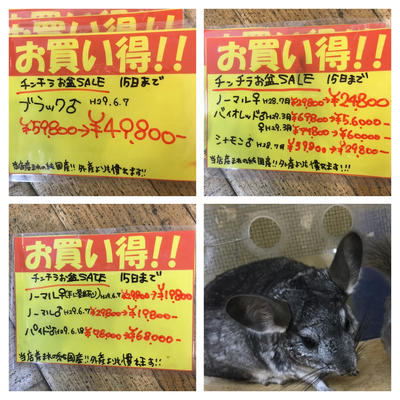 お買い得!!
チンチラお盆SALE 15日まで
ブラック♂ H29.6.7
¥59800→¥49,800-
当店産まれの純国産!!外産よりも慣れます!!
お買い得!!
チンチラお盆SALE 15日まで
ノーマル♀H28.7月¥29800→¥24800
バイオレット♂H29.3月¥69800→¥56000
♀H29.3月¥74800→¥60000-
シナモン♂H28.7月¥39800→¥29800-
当店産まれの純国産!!外産よりも慣れます!!
お買い得!!
チンチラお盆SALE 15日まで
H29.6.7¥29800→¥19800
ノーマル♂H29.6.7¥29800→¥19800-
H29.6.18¥78000→¥68000-
当店産まれの純国産!!外産よりも慣れます!!